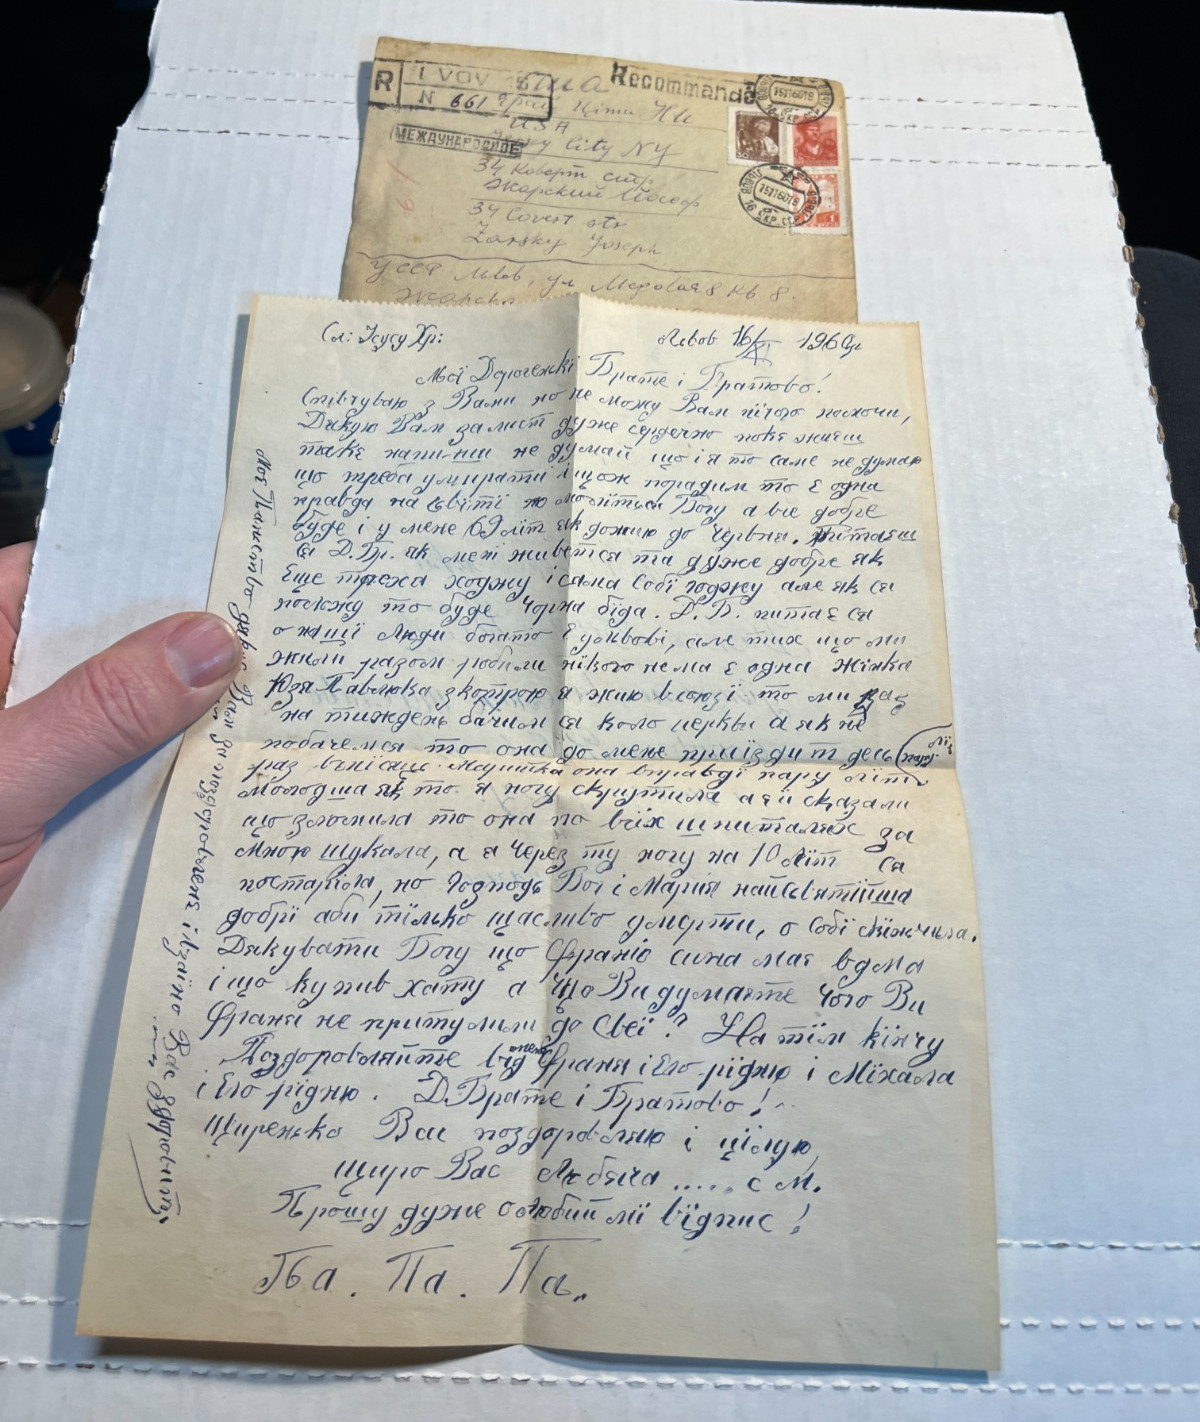 R
LVOV
N 661
Recommandé
МЕЖДУНАРОДНОЕ
США
Цити
USA
City NY
34 Коверт стр
Жарский Йосеф
34 Covert str
Zarsky Joseph
УССР Львов, ул кв 8.
Сл: Ісусу Хр:
Львов 16/ 1960р
Мої Дорогенькі Брате і Братово!
Співчуваю з Вами но не можу Вам нічого помочи,
Дякую Вам за лист дуже сердечно поки жиєш
таке напиши не думай що і я то саме не думаю
що треба умирати і щож порадим то є одна
правда на світі но моліться Богу а все добре
буде і у мене 69 літ як дожию до червня. Питаєш
ся Д. Бр. як мені живется та дуже добре як
Еще троха ходжу і сама собі годжу але як ся
положу то буде чорна біда. Д. Б. питає ся
о нащі Люди богато Є у Львові, але тих що ми
жили разом любили нікого нема є одна жінка
Юзя Павлюка з котрою я жию всоюзі то ми раз
на тиждень бачим ся коло церкви а як не
побачемся то она до мене приїздит десь
раз вмісяць. она вправді пару літ
молодша як то я ногу скрутила а її сказали
що зломила то она по всіх шпиталях за
мною шукала, а я через ту ногу на 10 літ ся
постаріла, но Господь Бог і Марія найсвятійша
добрі аби тілько щасливо умерти, о собі скінчила.
Дякувати Богу що Франьо сина має вдома
і що купив хату а Що Ви думаєте чого Ви
Франя не притулили до Свеї? На тім кінчу
Поздоровляйте від мене Франя і Его рідню і Міхала
і Его рідню. Д. Брате і Братово!
Щиренько Вас поздоровляю і цілую,
щиро Вас Любяча ..... с М.
Прошу дуже о Любий мі відпис!
Па. Па. Па.
Вам за поздоровленє і взаїмо Вас Здоровит